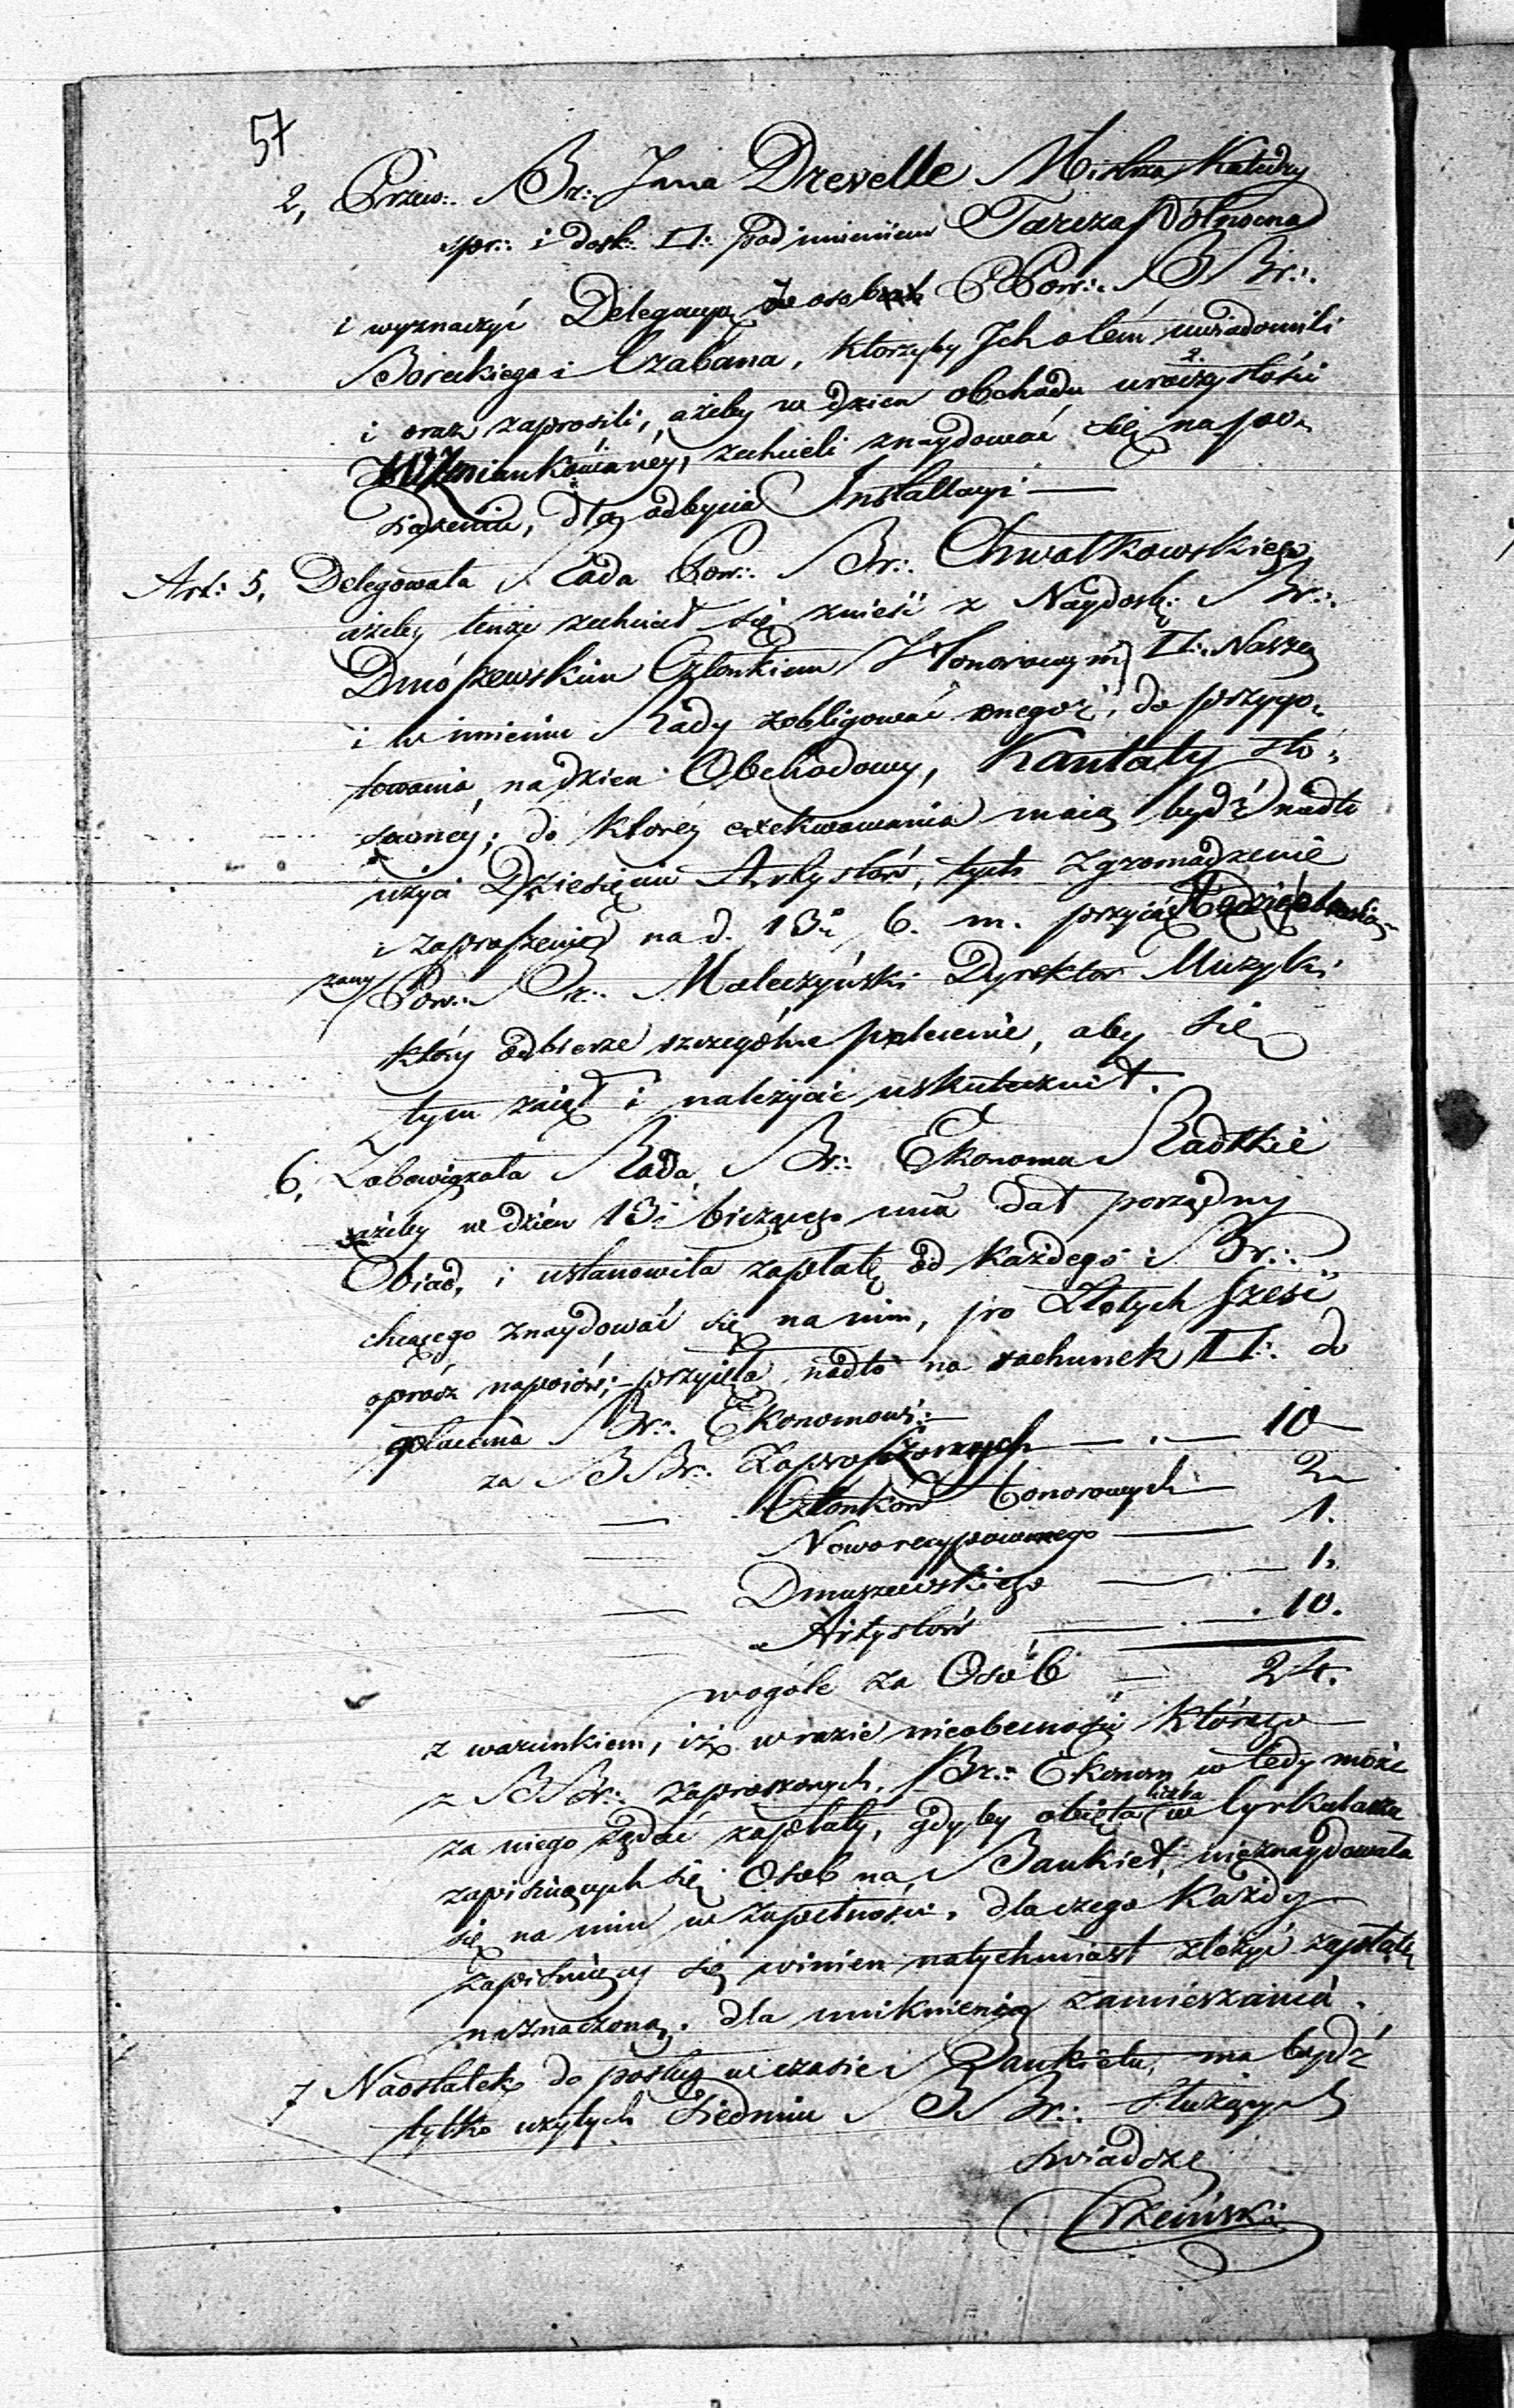 57
2, Przew:. Br:. Jana Drevelle Mistrza Katedry
spr:. i dosk: □:. pod imieniem Tarcza Północna
i wyznaczyć Delegacyę w osobach PPow:. BBr:.
Boreckiego i Czabana, którzyby Ich o tém uwiadomili
i oraz zaprosili, ażeby w dzień obchodu uroczystości
wzmiankowanéy, zechcieli znaydować się na po„
siedzeniu, dla odbycia Installacyi —
Art: 5, Delegowała Rada Pow:. Br:. Chwalkowskiego
ażeby tenże zechciał się znieść z Naydosk: Br:.
Dmószewskim Członkiem Honorowym □:. Naszey
i w imieniu Rady zobligować onegoż, do przygo„
towania na dzień Obchodowy, Kantaty sto„
sownéy; do któréy exekwowania maią bydź nadto
użyci Dziesięciu Artystów, tych zgromadzenie
i zaproszenie na d. 13. b. m.
Pow:. Br:. Malczyński Dyrektor Muzyki
który odbierze szczególne polecenie, aby się
tym zaiął i należycie uskutecznił.
6, Zobowiązała Rada Br:. Ekonoma Radtkie
ażeby w dzień 13. bieżącego mca dał porządny
Obiad, i ustanowiła zapłatę od każdego Br:.
chcącego znaydować się na nim, po Złotych sześć
oprócz napoiów; przyięła nadto na rachunek □:. do
płacenia Br:. Ekonomowi:
za BBr:. Zaproszonych — . — 10
— Członków honorowych — 2
— Noworecypowanego — 1.
— Dmuszewskiego — . — 1.
— Artystów — . — . 10.
wogóle za Osób — 24.
z warunkiem, iż w razie nieobecności którego
z BBr:. zaproszonych, Br:. Ekonom wtedy może
za niego żądać zapłaty, gdyby obięta liczba w Cyrkularzu
zapisuiących się Osób na Bankiet, nieznaydowała
się na nim w zupełności. dla czego każdy
zapisuiący się winien natychmiast złożyć zapłatę
naznaczoną, dla uniknienia zamieszania.
7 Naostatek do posług w czasie Bankietu, ma bydź
tylko użytych siedmiu BBr:. służących
świadczę